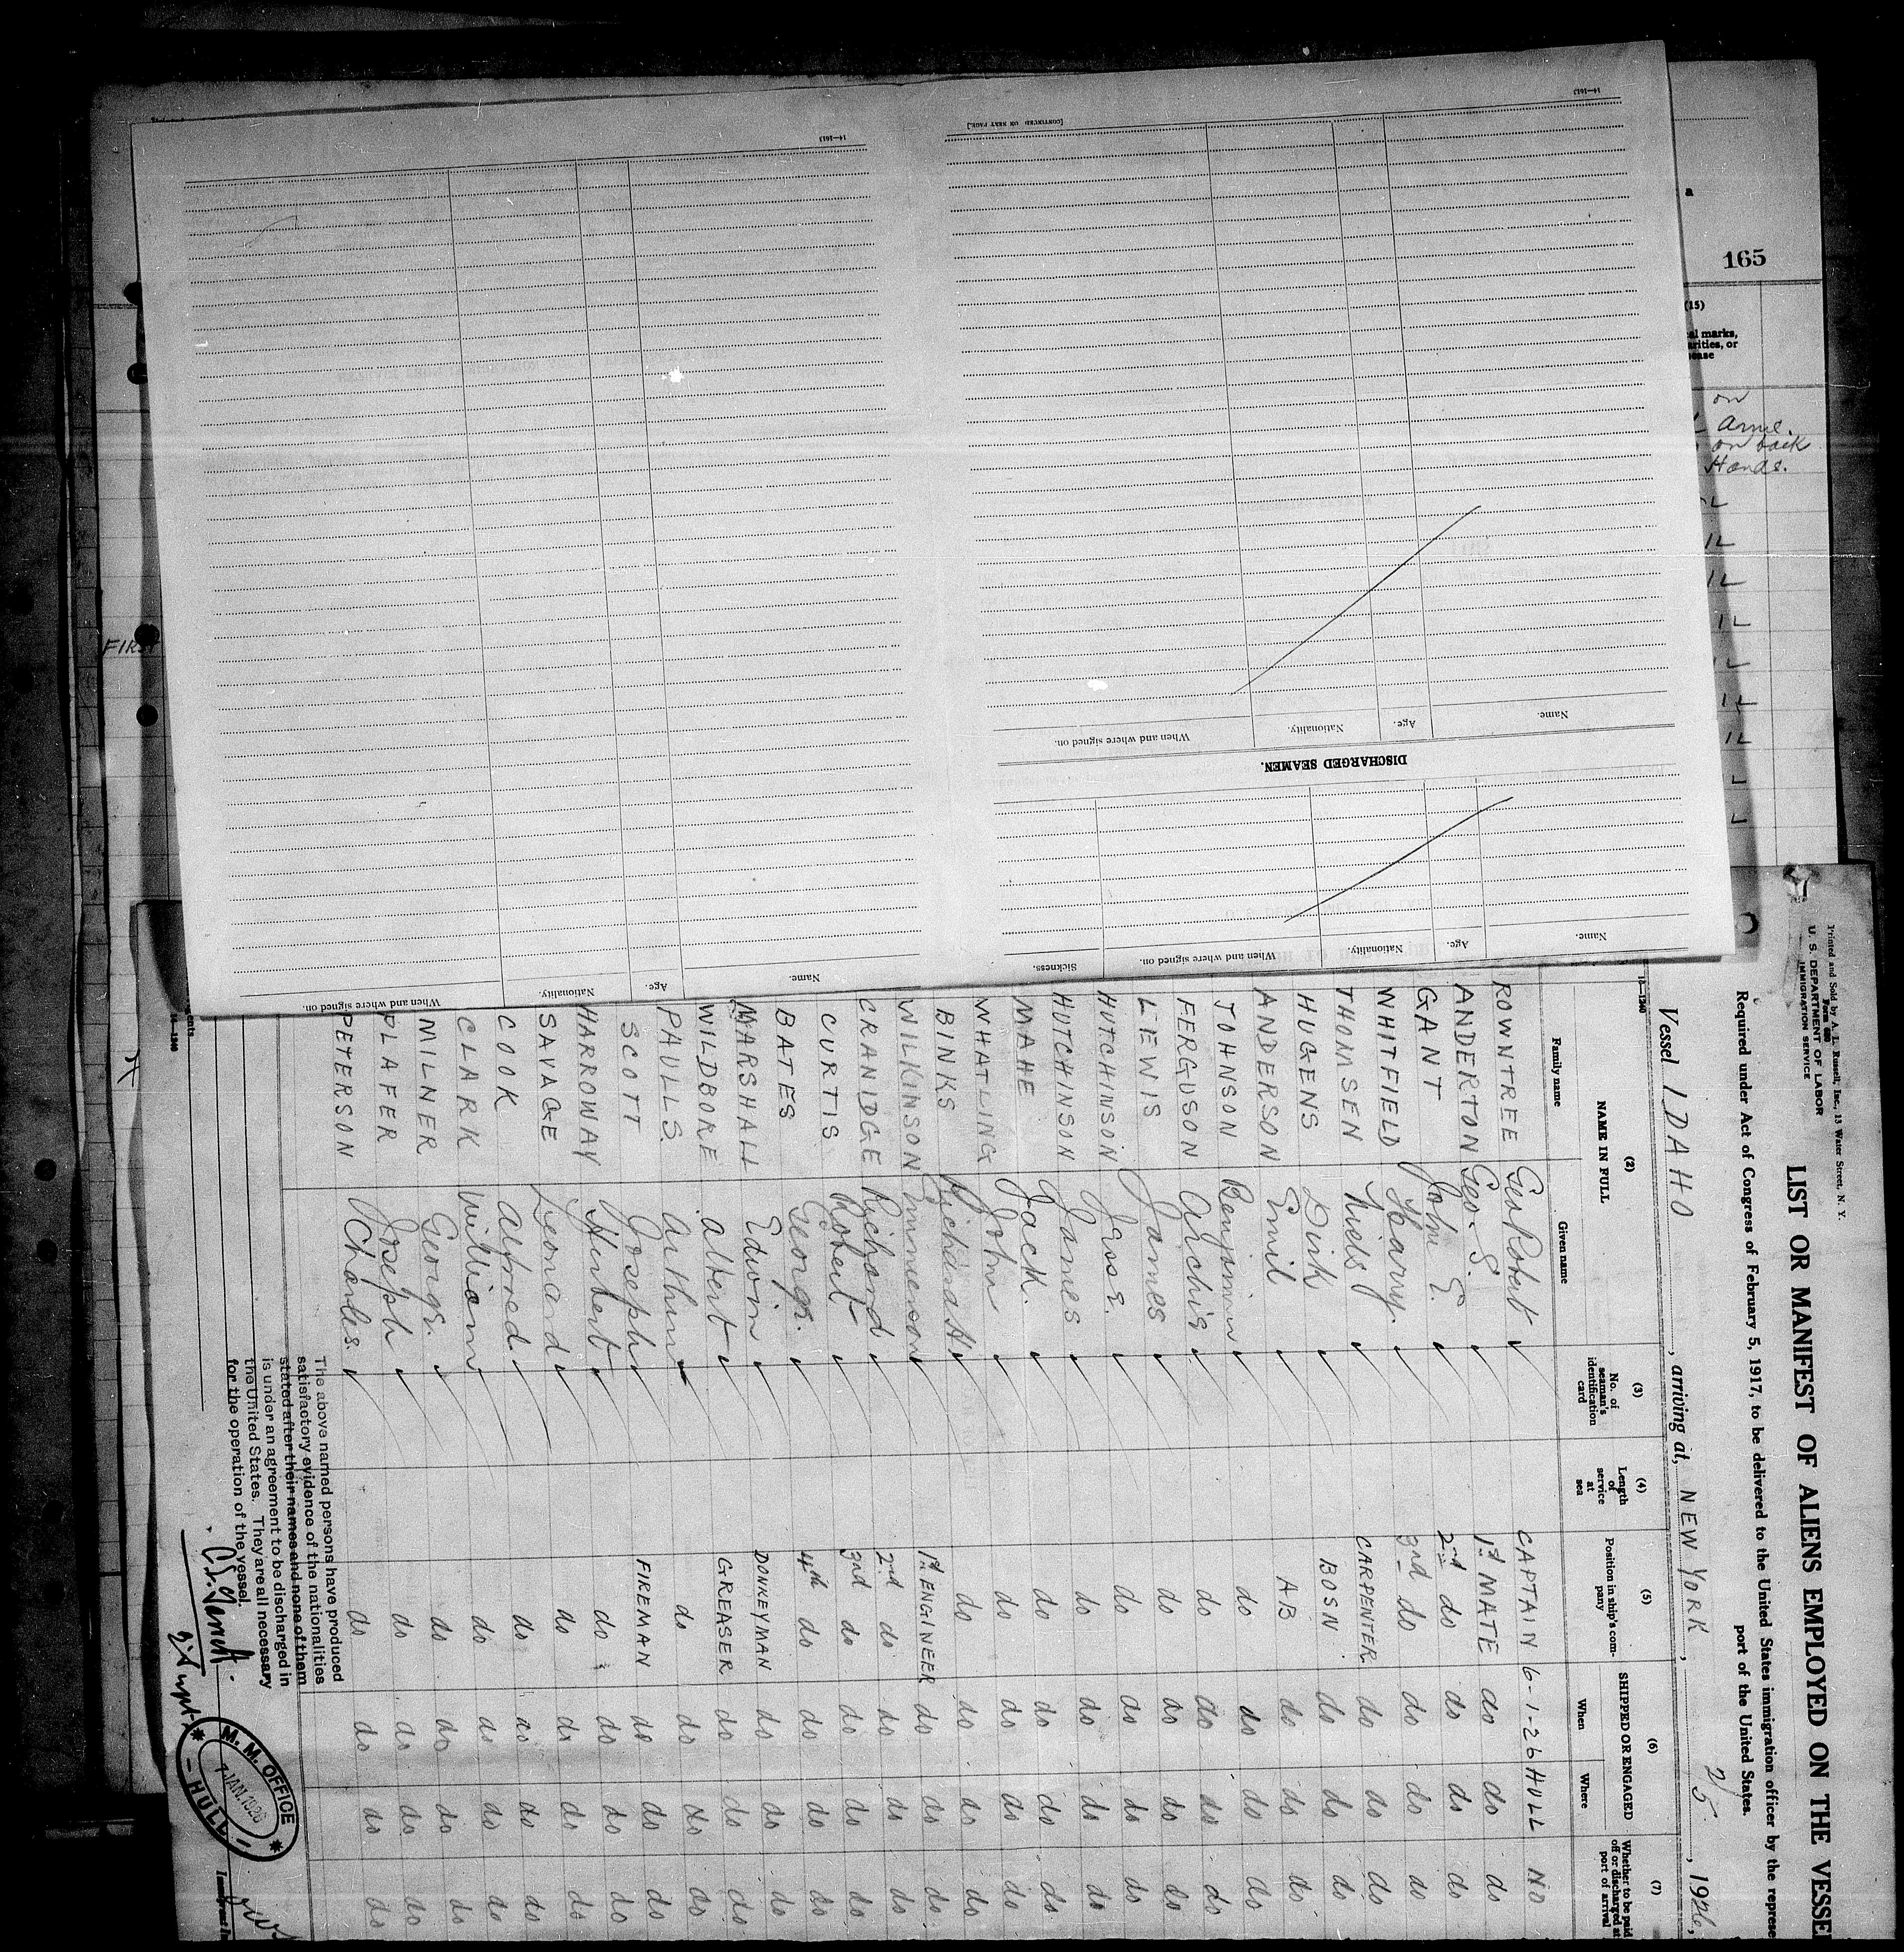 165
(15)
on
Arms.
on back
Hands.
FIRST
14—1613
14—1613
[CONTINUED ON NEXT PAGE.]
Name. Age. Nationality. When and where signed on.
DISCHARGED SEAMEN.
Name. Age. Nationality. When and where signed on. Sickness.
Name. Age. Nationality. When and where signed on.
Printed and Sold by A. L. Russell, Inc., 13 Water Street, N. Y.
Form 680
U. S. DEPARTMENT OF LABOR
IMMIGRATION SERVICE
LIST OR MANIFEST OF ALIENS EMPLOYED ON THE VESSE
Required under Act of Congress of February 5, 1917, to be delivered to the United States immigration officer by the represe
port of the United States.
Vessel IDAHO, arriving at, NEW YORK, 2/5, 1926,
(2) (3) (4) (5) (6) (7)
NAME IN FULL
Family name Given name
No. of seaman's identification card
Length of service at sea
Position in ship's company
SHIPPED OR ENGAGED
When Where
Whether to be paid off or discharged at port of arrival
ROWNTREE Geo Robert CAPTAIN 6-1-26 HULL NO
ANDERTON Geo. S. 1st MATE do do do
GANT John E. 2nd do do do do
WHITFIELD Harry. 3rd do do do do
THOMSEN Niels CARPENTER do do do
HUGENS Dirk BOSN do do do
ANDERSON Emil AB do do do
JOHNSON Benjamin do do do do
FERGUSON Archie do do do do
LEWIS James do do do do
HUTCHINSON Jesse. do do do do
HUTCHINSON James do do do do
MAHE Jack. do do do do
WHATLING John do do do do
BINKS Richard H do do do do
WILKINSON Emmerson 1st ENGINEER do do do
CRANIDGE Richard 2nd do do do do
CURTIS Robert 3rd do do do do
BATES George. 4th do do do do
MARSHALL Edwin DONKEYMAN do do do
WILDBORE Albert GREASER do do do
PAULLS Arthur do do do do
SCOTT Joseph FIREMAN do do do
HARROWAY Herbert do do do do
SAVAGE Leonard do do do do
COOK Alfred do do do do
CLARK William do do do do
MILNER George. do do do do
PLAFER Joseph do do do do
PETERSON Charles. do do do do
The above named persons have produced
satisfactory evidence of the nationalities
stated after their names and none of them
is under an agreement to be discharged in
the United States. They are all necessary
for the operation of the vessel.
M. M. OFFICE
7 JAN. 1926
HULL